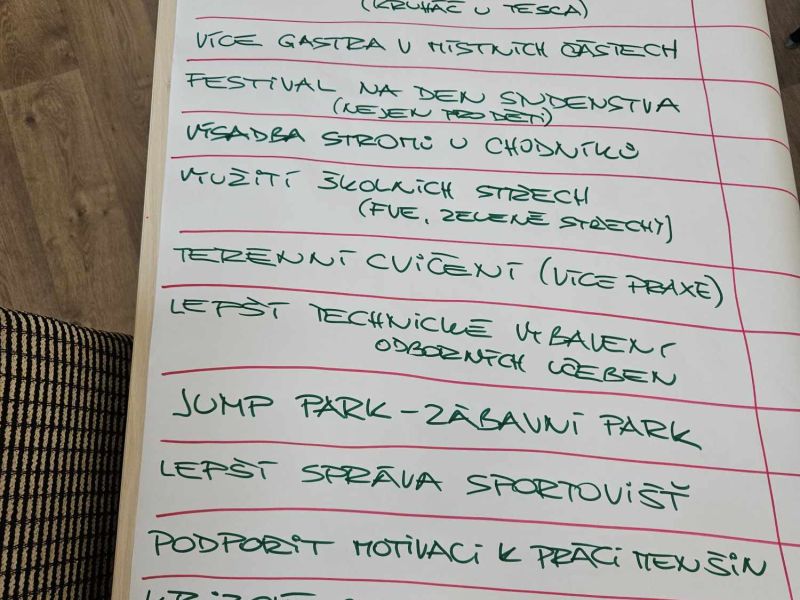 (KRUHÁČ U TESCA)
VÍCE GASTRA V MÍSTNÍCH ČÁSTECH
FESTIVAL NA DEN SNDENSTVA
(NEJEN PRO DĚTI)
VÝSADBA STROMŮ U CHODNÍKŮ
VYUŽITÍ ŠKOLNÍCH STŘECH
(FVE, ZELENÉ STŘECHY)
TERÉNNÍ CVIČENÍ (VÍCE PRAXE)
LEPŠÍ TECHNICKÉ VYBAVENÍ
ODBORNÝCH UČEBEN
JUMP PARK - ZÁBAVNÍ PARK
LEPŠÍ SPRÁVA SPORTOVIŠŤ
PODPOŘIT MOTIVACI K PRÁCI MENŠIN